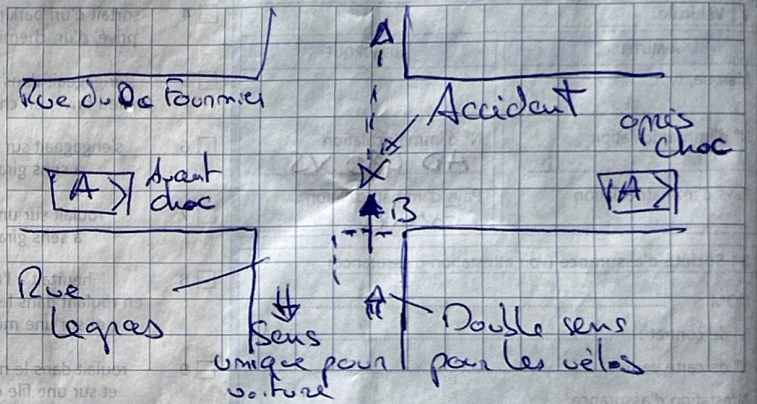 Rue du Dr Fournier
Accident
après
choc
A
Avant
choc
A
B
Rue
Legras
Sens
unique pour
voiture
Double sens
pour les vélos